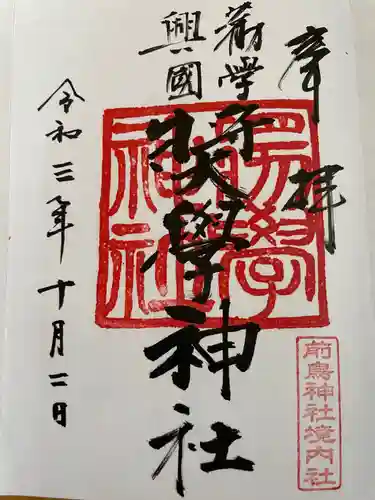 奉拝
勧學
興國
奬學神社
令和三年十月二日
奬學神社
前鳥神社境内社